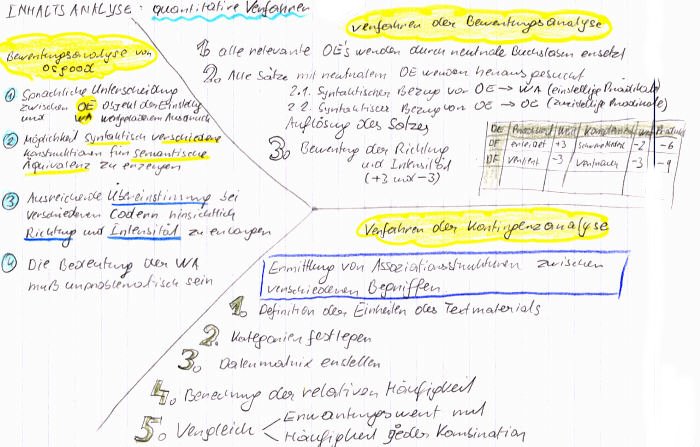 INHALTSANALYSE: quantitative Verfahren
Bewertungsanalyse von
Osgood
① Sprachliche Unterscheidung
zwischen OE Objekt der Einstellg
und WA wertgeladenem Ausdruck
② Möglichkeit syntaktisch verschiedene
Konstruktionen für semantische
Äquivalenz zu erzeugen
③ Ausreichende Übereinstimmung bei
verschiedenen Codern hinsichtlich
Richtung und Intensität zu erlangen
④ Die Bedeutung der WA
muß unproblematisch sein
Verfahren der Bewertungsanalyse
1. alle relevante OE's werden durch neutrale Buchstaben ersetzt
2. Alle Sätze mit neutralem OE werden herausgesucht
2.1. Syntaktischer Bezug vor OE → WA (einstellige Prädikate)
2.2. Syntaktischer Bezug von OE → OE (zweistellige Prädikate)
Auflösung des Satzes
3. Bewertung der Richtung
und Intensität
(+3 und -3)
OE Wert Produkt
OF +3 -2 -6
OF verliert -3 -3 -9
Verfahren der Kontingenzanalyse
Ermittlung von Assoziationsstrukturen zwischen
verschiedenen Begriffen
1. Definition der Einheiten des Textmaterials
2. Kategorien festlegen
3. Datenmatrix erstellen
4. Berechnung der relativen Häufigkeit
5. Vergleich < Erwartungswert mit
Häufigkeit jeder Kombination